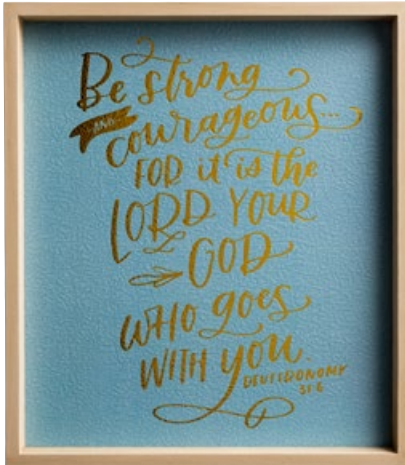 Be strong
AND
courageous...
FOR it is the
LORD YOUR
GOD
WHO goes
WITH you.
DEUTERONOMY
31:6